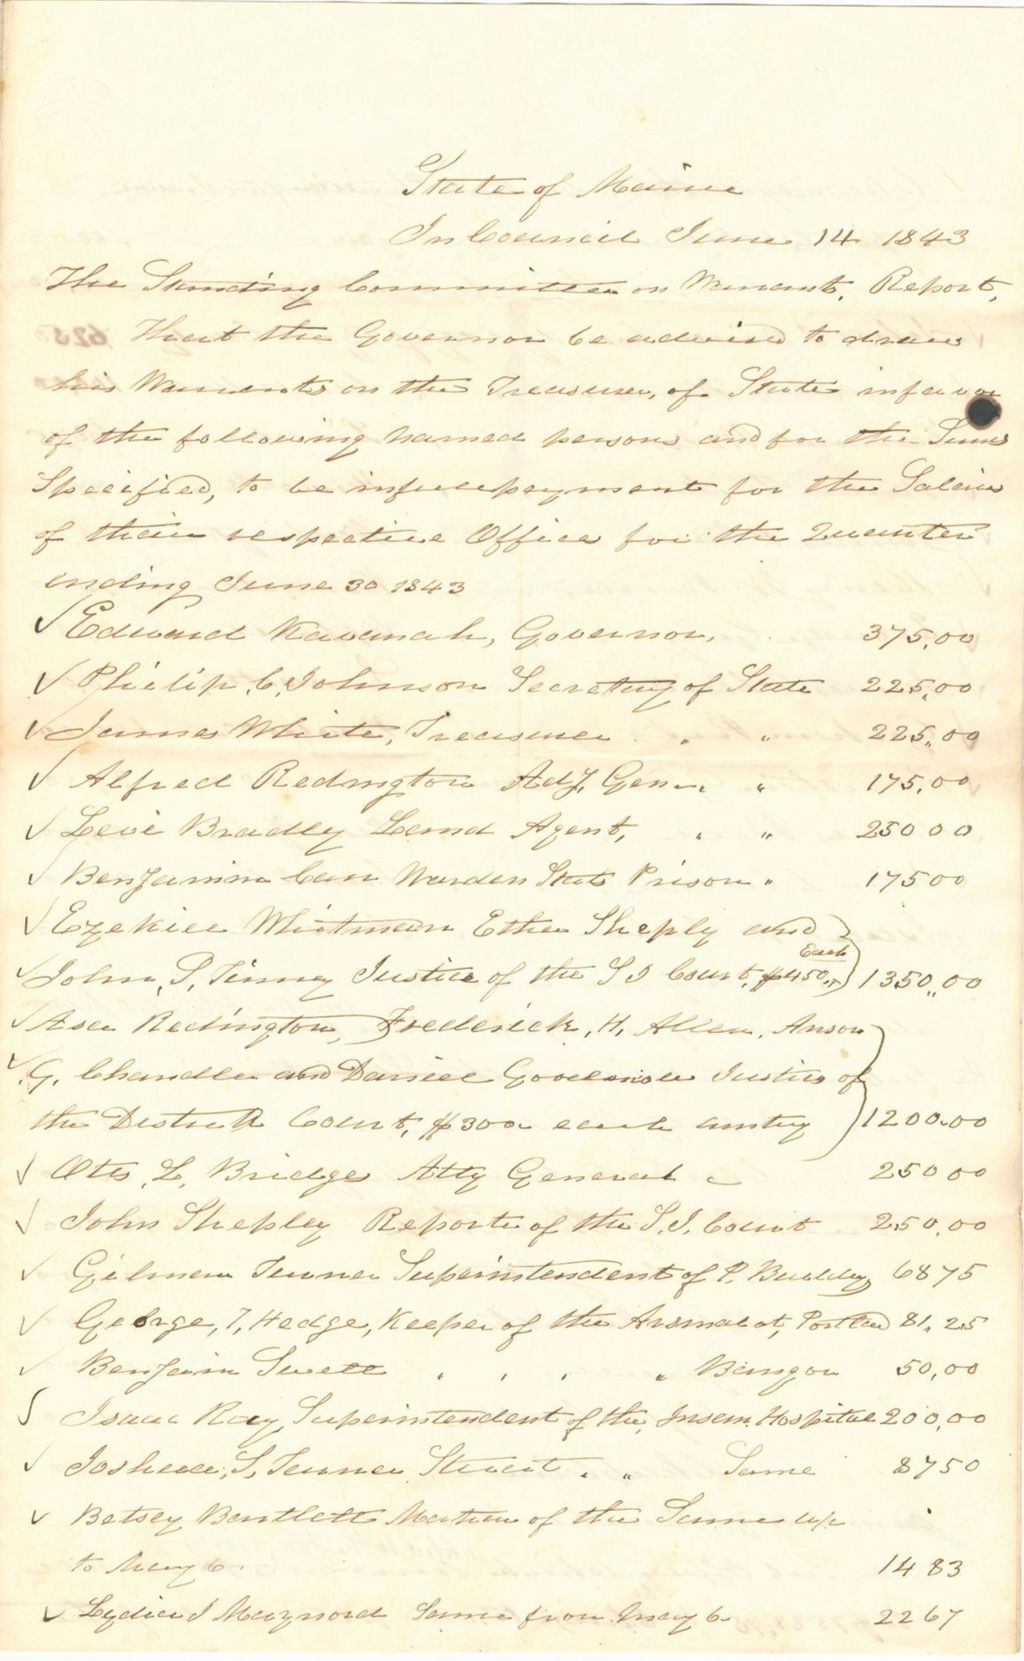 State of Maine
In Council June 14 1843
The Standing Committee on Warrants, Report,
That the Governor be advised to draw
his Warrants on the Treasurer, of State in favor
of the following named persons and for the Sums
Specified, to be in full payment for the Salaries
of their respective Offices for the Quarter
ending June 30 1843
✓ Edward Kavanah, Governor, 375,00
✓ Philip, C, Johnson Secretary of State 225,00
✓ James White, Treasurer " " 225,00
✓ Alfred Redington Adj, Gen " 175,00
✓ Levi Bradley Land Agent, " " 250 00
✓ Benjamin Carr Warden State Prison " 175 00
✓ Ezekiel Whitman Ether Sheply and
✓ John, S, Tenney Justice of the S J Court, $450, Each 1350,00
✓ Asa Redington, Frederick, H, Allen, Anson
✓ G, Chandler and Daniel Goodenow Justices of
the District Court, $300 each 1200.00
✓ Otis, L, Bridge Atty General 250 00
✓ John Shepley Reporter of the S, J, Court 250,00
✓ Gilman Turner Superintendent of P. Buildg 68 75
✓ George, T, Hedge, Keeper of the Arsenal at, Portland 81,25
✓ Benjamin Swett " " " " Bangor 50,00
✓ Isaac Ray, Superintendent of the, Insan. Hospital 200,00
✓ Joshua, S, Turner Stuart " " Same 87 50
✓ Betsey Bartlett Matron of the Same up
to May 6. 14 83
✓ Lydia S Maynord Same from May 6 22 67